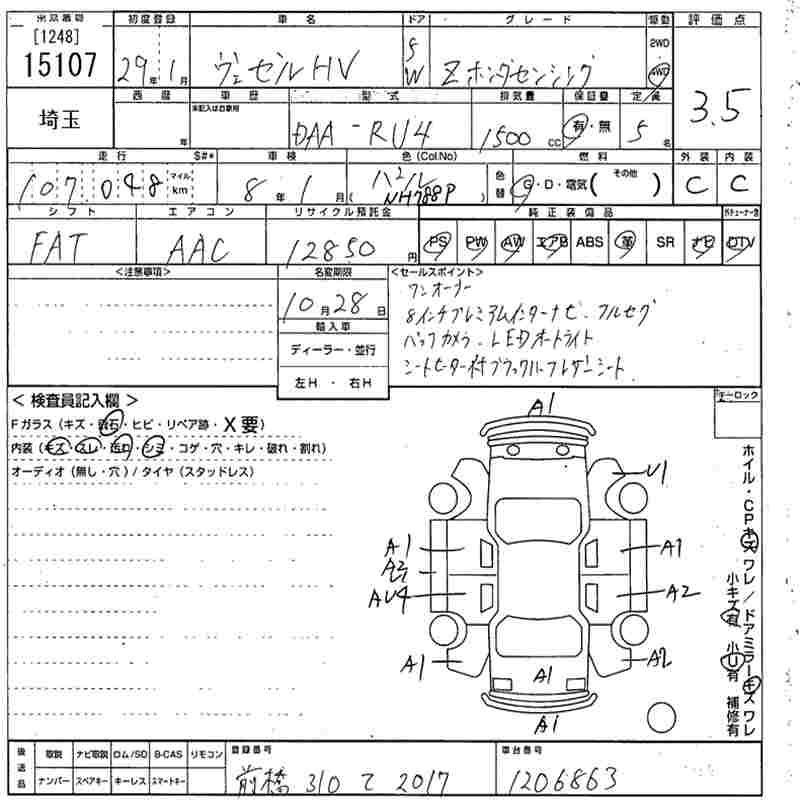 [1248]
15107
埼玉
初度登録
29年1月
車名
ヴェゼルHV
ドア
5
W
グレード
Z ホンダセンシング
駆動
2WD
4WD
評価点
3.5
西暦
年
車歴
未記入は自家用
型式
DAA-RU4
排気量
1500 CC
保証書
有・無
定員
5名
走行
S#*
107,048
マイル
km
車検
8年1月
色(Col.No)
パール
NH788P
色替
燃料
G・D・電気( その他 )
外装
C
内装
C
シフト
FAT
エアコン
AAC
リサイクル預託金
12850円
純正装備品
PS PW AW エアB ABS 革 SR ナビ DTV
<注意事項>
名変期限
10月28日
輸入車
ディーラー・並行
左H・右H
<セールスポイント>
ワンオーナー
8インチプレミアムインターナビ・フルセグ
バックカメラ・LEDオートライト
シートヒーター付ブラックハーフレザーシート
<検査員記入欄>
Fガラス(キズ・飛石・ヒビ・リペア跡・X要)
内装(キズ・スレ・汚れ・シミ・コゲ・穴・キレ・破れ・割れ)
オーディオ(無し・穴)/タイヤ(スタッドレス)
キーロック
A1
U1
A1
A1
A2
AU4
A2
A1
A2
A1
A1
ホイル・CPキズワレ/ドアミラーキズワレ
小キズ有 小U有 補修有
後送品
取説 ナビ取説 ロム/SD B-CAS リモコン
ナンバー スペアキー キーレス スマートキー
登録番号
前橋 310 て 2017
車台番号
1206863